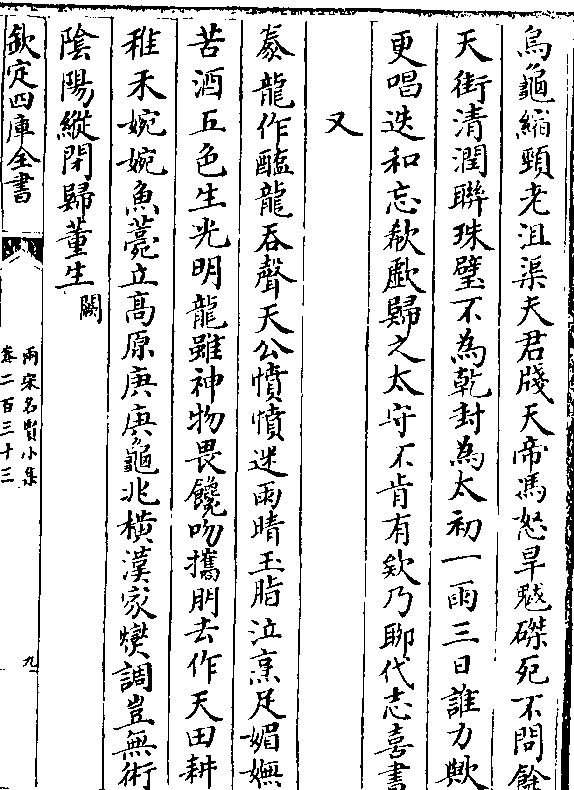 烏龜縮頸老沮渠夫君牋天帝馮怒旱魃磔死不問餘
天街清潤聯珠璧不為乾封為太初一雨三日誰力歟
更唱迭和忘欷歔歸之太守不肯有欸乃聊代志喜書
又
豢龍作醢龍吞聲天公憒憒迷雨晴玉脂泣烹足媚嫵
苦酒五色生光明龍雖神物畏饞吻攜朋去作天田耕
稚禾婉婉魚薧立高原庚庚龜兆橫漢家燮調豈無術
陰陽縱閉歸董生闕
欽定四庫全書
兩宋名賢小集
卷二百三十三
九